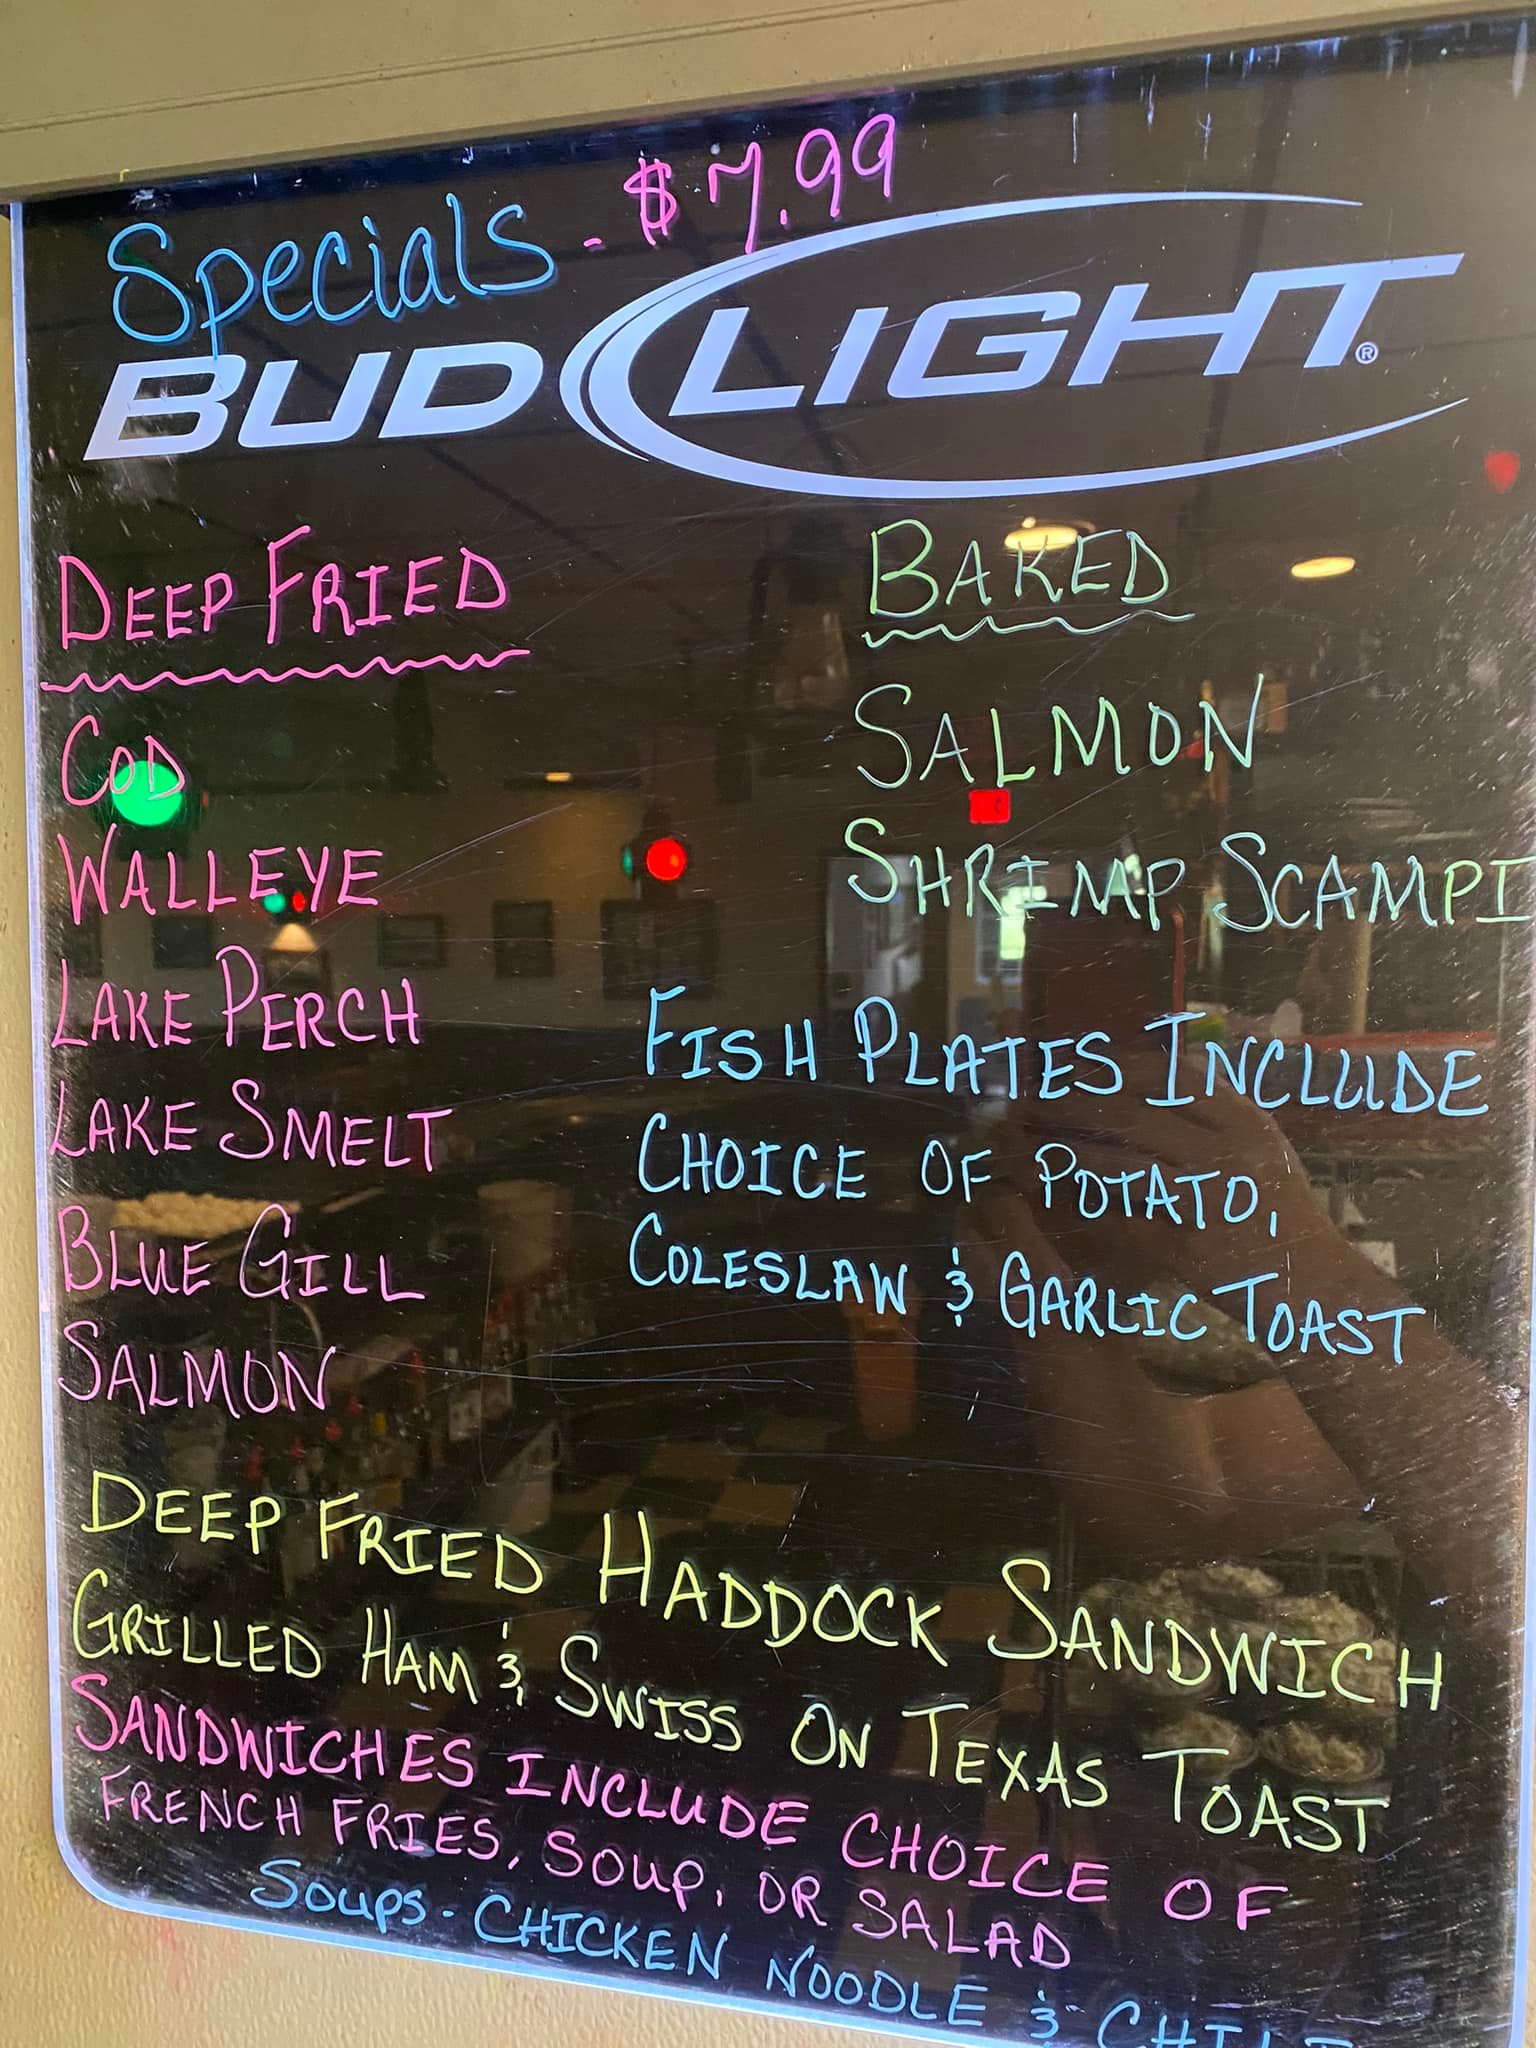 Specials - $7.99
BUD LIGHT®
DEEP FRIED
COD
WALLEYE
LAKE PERCH
LAKE SMELT
BLUE GILL
SALMON
BAKED
SALMON
SHRIMP SCAMPI
FISH PLATES INCLUDE
CHOICE OF POTATO,
COLESLAW & GARLIC TOAST
DEEP FRIED HADDOCK SANDWICH
GRILLED HAM & SWISS ON TEXAS TOAST
SANDWICHES INCLUDE CHOICE OF
FRENCH FRIES, SOUP, OR SALAD
SOUPS - CHICKEN NOODLE & CHILI